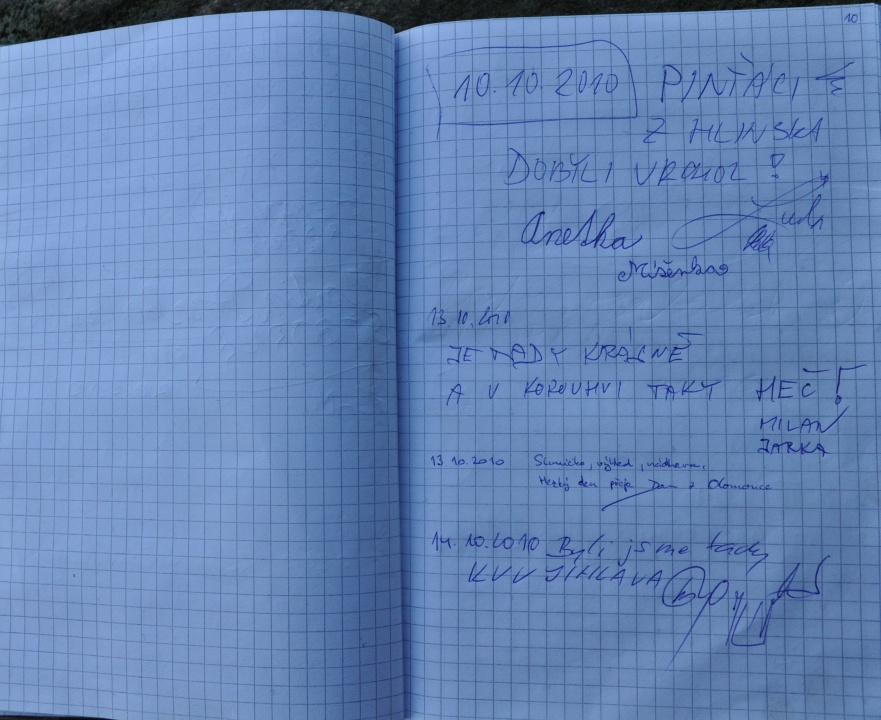 10
10.10.2010 PINŤÁCI
Z HLINSKA
DOBYLI VRCHOL !
Anetka
13.10.2010
JE TADY KRÁSNĚ
A V KOROUHVI TAKY HEČ!
MILAN
JARKA
13.10.2010 Sluníčko, výhled, nádhera.
Hezký den přeje Dan z Olomouce
14.10.2010 Byli jsme tady
KVV JIHLAVA